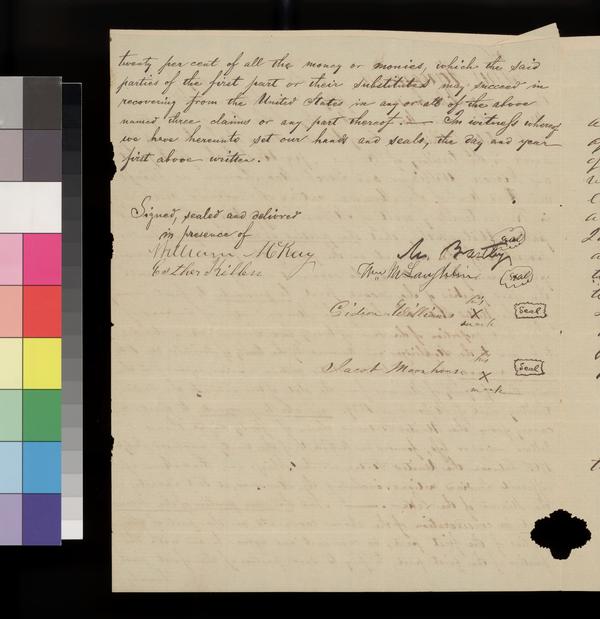 twenty per cent of all the money or monies, which the said
parties of the first part or their substitutes may succeed in
recovering from the United States in any or all of the above
named three claims or any part thereof. — In witness whereof
we have hereunto set our hands and seals, the day and year
first above written.
Signed, sealed and delivered
in presence of
William McKay
Esther Killen
M. Bartley Seal
Wm McLaughlin Seal
Gideon Williams his X mark Seal
Jacob Moorhouse his X mark Seal